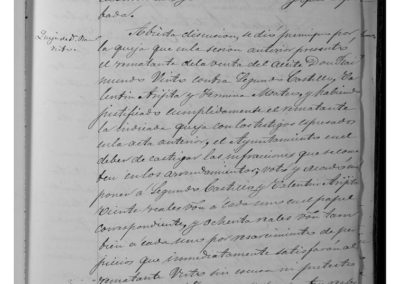 bada.
Queja de D. Rai
Vieto.
Abierta discusion, se dio principio por
la queja que en la sesion anterior presentó
el rematante de la venta del Aceite Don Rai
mundo Vieto contra Segundo Castillo, Va
lentin Arijita y Fermina Montes, y habiendo
justificado cumplidamente el rematante
la indicada queja con los testigos espresados
en la acta anterior, el Ayuntamiento en el
deber de castigar las infracciones que se come
ten en los arrendamientos, votó y acordó im
poner a Segundo Castillo, y Valentin Arijita
veinte reales von á cada uno en el papel
correspondiente, y ochenta reales von tam
bien a cada uno por resarcimiento de per
juicios que inmediatamente satisfarán al
rematante Vieto sin escusa ni pretesto